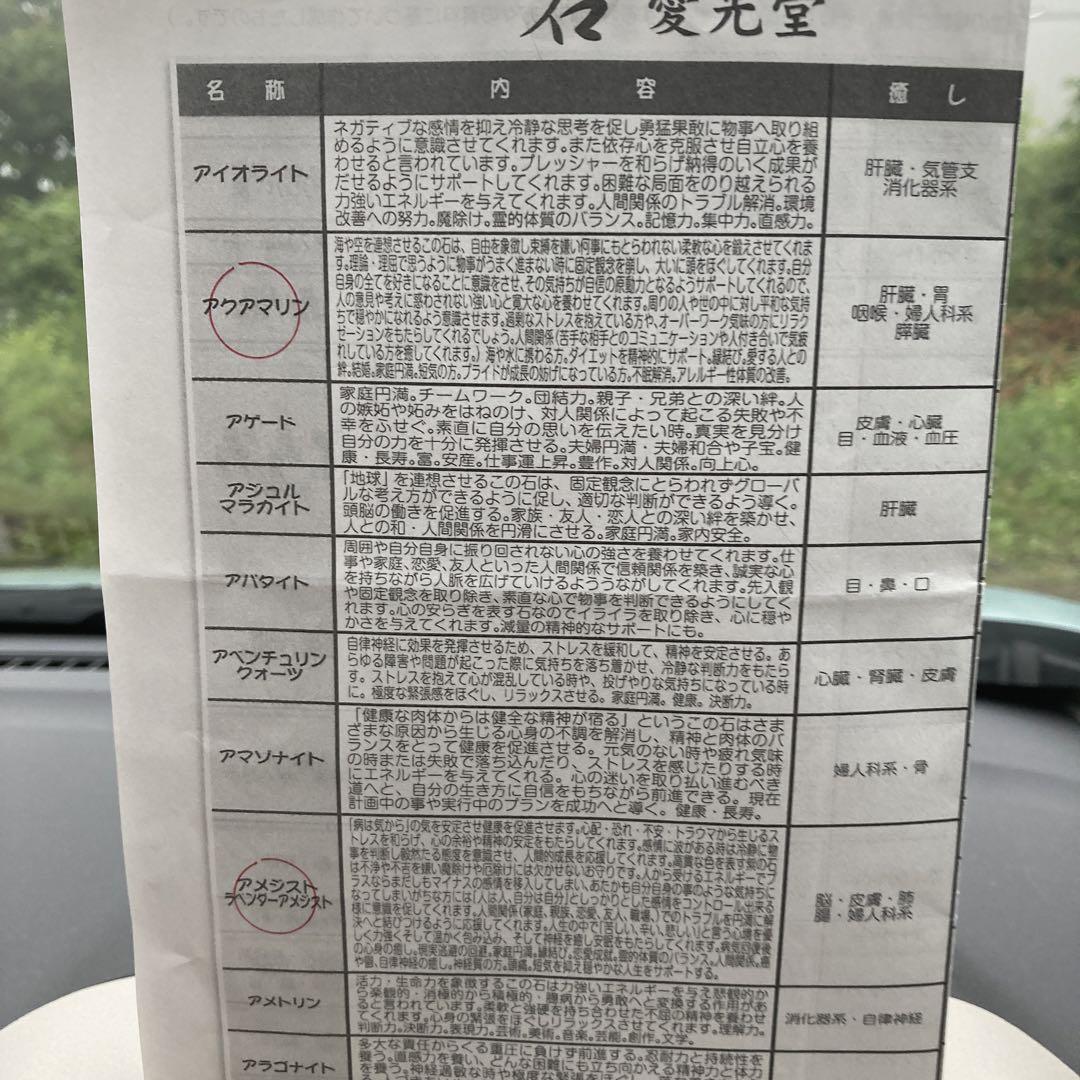 石 愛光堂
名 称
内 容
癒 し
アイオライト
ネガティブな感情を抑え冷静な思考を促し勇猛果敢に物事へ取り組
めるように意識させてくれます。また依存心を克服させ自立心を養
わせると言われています。プレッシャーを和らげ納得のいく成果が
だせるようにサポートしてくれます。困難な局面をのり越えられる
力強いエネルギーを与えてくれます。人間関係のトラブル解消。環境
改善への努力。魔除け。霊的体質のバランス。記憶力。集中力。直感力。
肝臓・気管支
消化器系
アクアマリン
海や空を連想させるこの石は、自由を象徴し束縛を嫌い何事にもとらわれない柔軟な心を鍛えさせてくれま
す。理論・理屈で思うように物事がうまく進まない時に固定観念を崩し、大いに頭をほぐしてくれます。自分
自身の全てを好きになることに意識をさせ、その気持ちが自信の原動力となるようサポートしてくれるので、
人の意見や考えに惑わされない強い心と寛大な心を養わせてくれます。周りの人や世の中に対し平和な気持
ちで穏やかになれるよう意識させます。過剰なストレスを抱えている方や、オーバーワーク気味の方にリラク
ゼーションをもたらしてくれるでしょう。人間関係(苦手な相手とのコミュニケーションや人付き合いで気疲
れしている方を癒してくれます。)海や水に携わる方。ダイエットを精神的にサポート。縁結び。愛する人との
絆。結婚。家庭円満。短気の方。プライドが成長の妨げになっている方。不眠解消。アレルギー性体質の改善。
肝臓・胃
咽喉・婦人科系
膵臓
アゲード
家庭円満。チームワーク。団結力。親子・兄弟との深い絆。人
の嫉妬や妬みをはねのけ、対人関係によって起こる失敗や不
幸をふせぐ。素直に自分の思いを伝えたい時。真実を見分け
自分の力を十分に発揮させる。夫婦円満・夫婦和合や子宝。健
康・長寿。富。安産。仕事運上昇。豊作。対人関係。向上心。
皮膚・心臓
目・血液・血圧
アジュル
マラカイト
「地球」を連想させるこの石は、固定観念にとらわれずグローバ
ルな考え方ができるように促し、適切な判断ができるよう導く。
頭脳の働きを促進する。家族・友人・恋人との深い絆を築かせ、
人との和・人間関係を円滑にさせる。家庭円満。家内安全。
肝臓
アパタイト
周囲や自分自身に振り回されない心の強さを養わせてくれます。仕
事や家庭、恋愛、友人といった人間関係で信頼関係を築き、誠実な心
を持ちながら人脈を広げていけるよううながしてくれます。先入観
や固定観念を取り除き、素直な心で物事を判断できるようにしてく
れます。心の安らぎを表す石なのでイライラを取り除き、心に穏や
かさを与えてくれます。減量の精神的なサポートにも。
目・鼻・口
アベンチュリン
クォーツ
自律神経に効果を発揮させるため、ストレスを緩和して、精神を安定させる。あ
らゆる障害や問題が起こった際に気持ちを落ち着かせ、冷静な判断力をもたら
す。ストレスを抱えて心が混乱している時や、投げやりな気持ちになっている時
に。極度な緊張感をほぐし、リラックスさせる。家庭円満。健康。決断力。
心臓・腎臓・皮膚
アマゾナイト
「健康な肉体からは健全な精神が宿る」というこの石はさま
ざまな原因から生じる心身の不調を解消し、精神と肉体のバ
ランスをとって健康を促進させる。元気のない時や疲れ気味
の時または失敗で落ち込んだり、ストレスを感じたりする時
にエネルギーを与えてくれる。心の迷いを取り払い進むべき
道へと、自分の生き方に自信をもちながら前進できる。現在
計画中の事や実行中のプランを成功へと導く。健康・長寿。
婦人科系・骨
アメシスト
ラベンダーアメシスト
「病は気から」の気を安定させ健康を促進させます。心配・恐れ・不安・トラウマから生じるス
トレスを和らげ、心の余裕や精神の安定をもたらしてくれます。感情に波がある時は冷静に物
事を判断し毅然たる態度を意識させ、人間的成長を応援してくれます。高貴な色を表す紫の石
は不浄や不吉を嫌い魔除けや厄除けには欠かせないお守りです。人から受けるエネルギーでプ
ラスならまだしもマイナスの感情を移入してしまい、あたかも自分自身の事のような気持ちに
なってしまいがちな方には「人は人、自分は自分」としっかりとした感情をコントロール出来る
様に意識を促してくれます。人間関係(家庭、親族、恋愛、友人、職場、)でのトラブルを円満に解
決へと結びつけるように応援してくれます。人生の中で「苦しい、辛い、悲しい」と言う心境を優
しく力強くそして温かく包み込み、そして神経を癒し安眠をもたらしてくれます。病気回復後
の心身の癒し。現実逃避の回避。家庭円満。縁結び。恋愛成就。霊的体質のバランス。人間関係。癌
や鬱、自律神経の癒し。神経質の方。頭痛。短気を抑え穏やかな人生をサポートする。
脳・皮膚・肺
腸・婦人科系
アメトリン
活力・生命力を象徴するこの石は力強いエネルギーを与え悲観的か
ら楽観的・消極的から積極的・臆病から勇敢へと変換する作用があ
ると言われています。柔軟と強硬を持ち合わせた不屈の精神を養わせ
てくれます。心身の緊張をほぐしリラックスさせてくれます。理解力。
判断力。決断力。表現力。芸術。美術。音楽。芸能。創作。文学。
消化器系・自律神経
アラゴナイト
多大な責任からくる重圧に負けず前進する。忍耐力と持続性を
養う。直感力を養い、どんな困難にも立ち向かえる精神力と体力